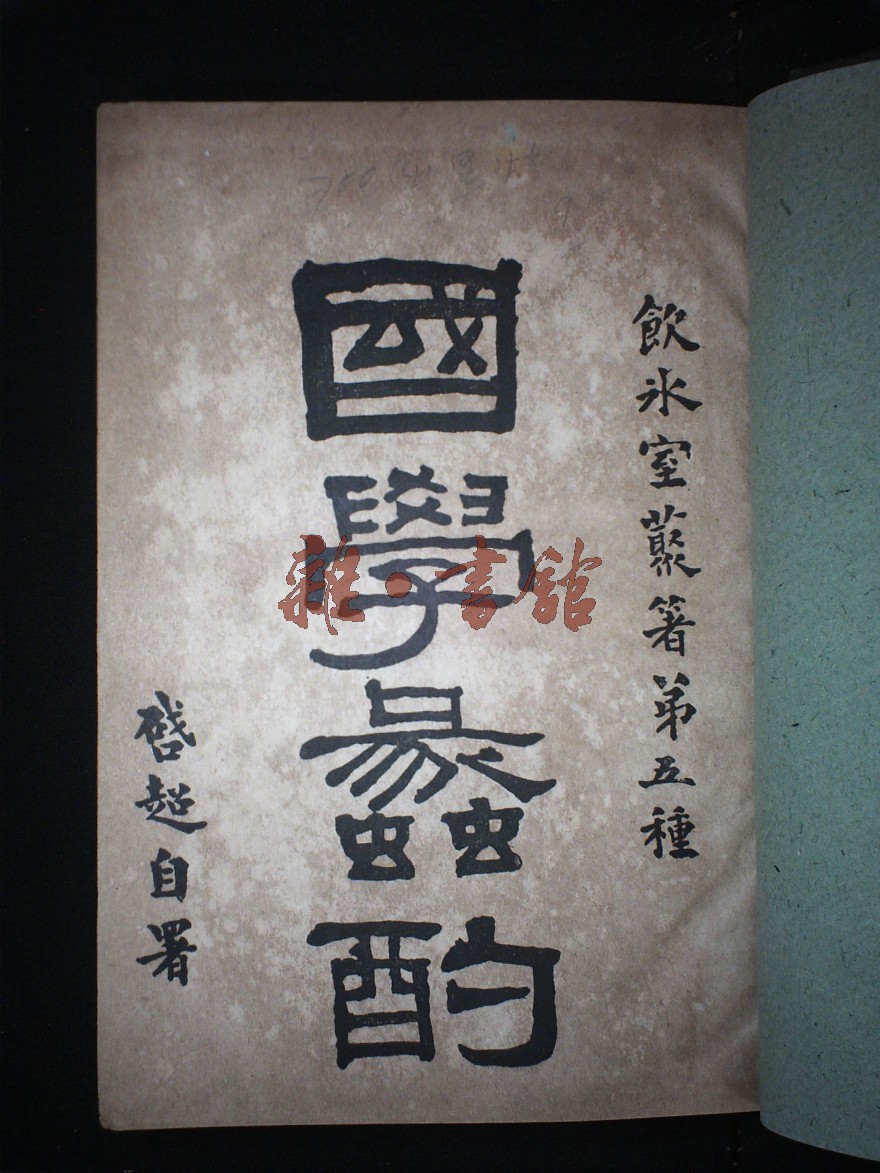 飲冰室叢箸第五種
國學蠡酌
啓超自署
雜·書館